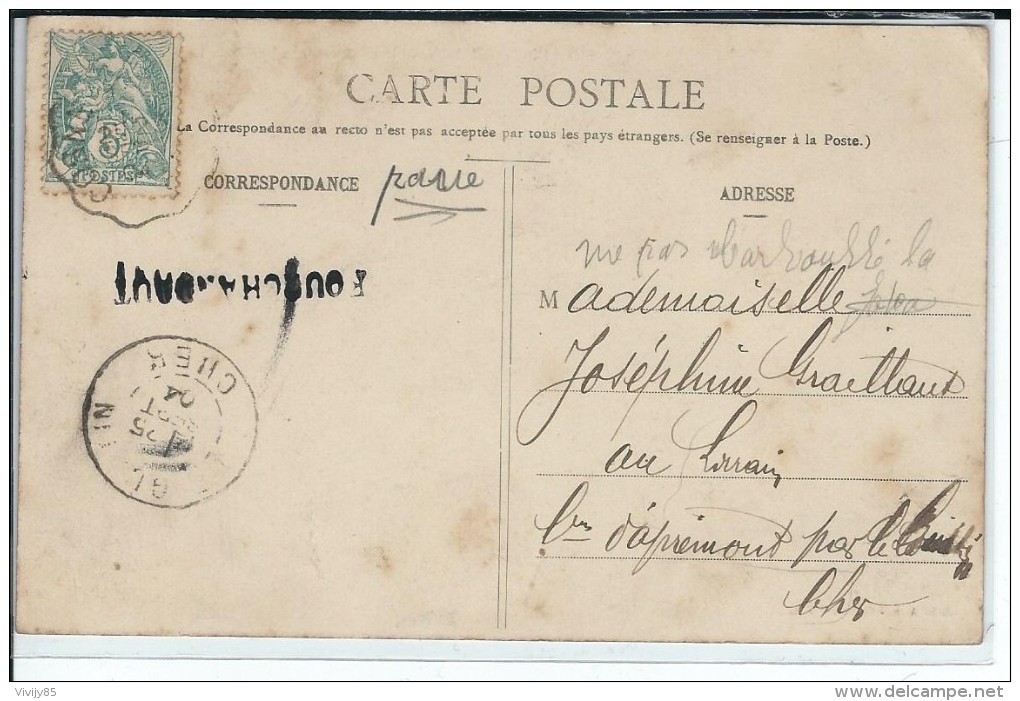 CARTE POSTALE
La Correspondance au recto n'est pas acceptée par tous les pays étrangers. (Se renseigner à la Poste.)
CORRESPONDANCE
ADRESSE
5
POSTES
ne pas la
Mademoiselle
Joséphine Graillaut
au Lorrain
FOURCHAMBAUT
CHER
25
SEPT
04
Cne d'apremont par le
Cher
Vivijy85
www.delcampe.net